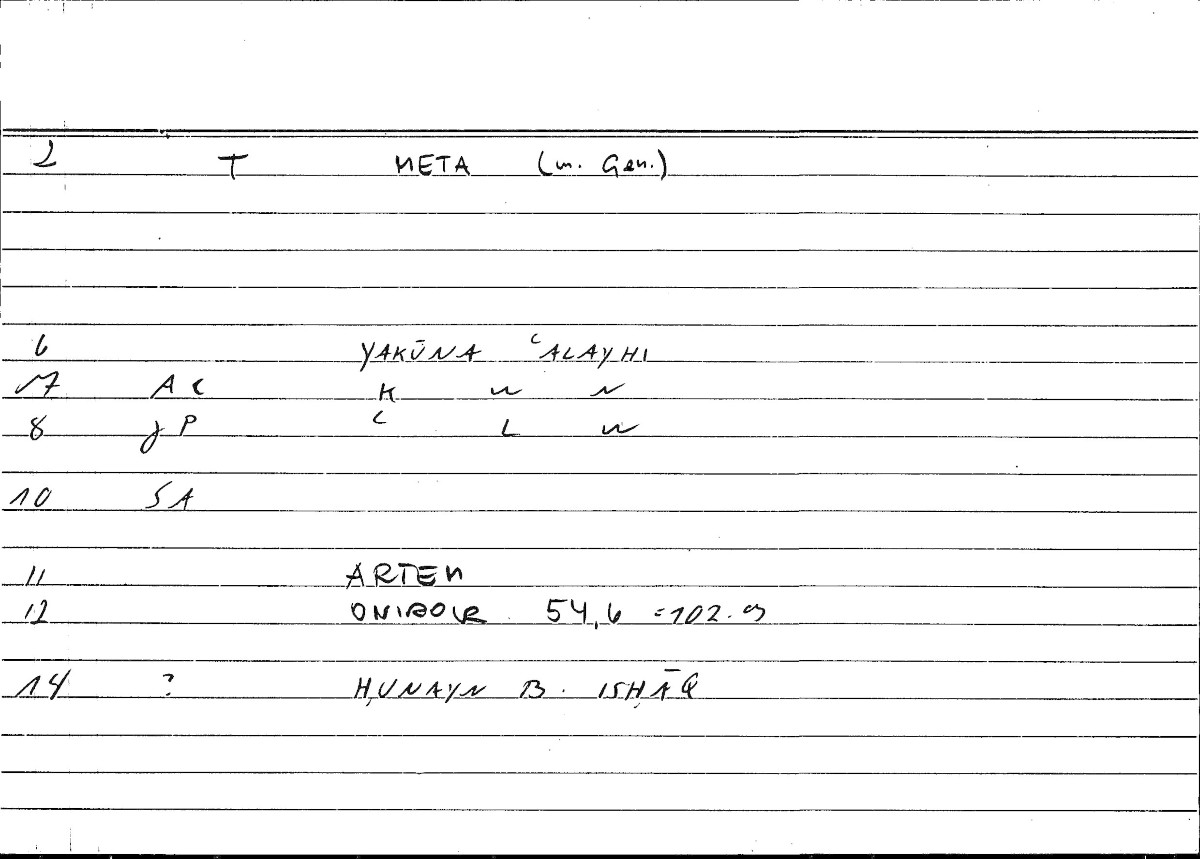 2 T META (m. Gen.)
6 YAKŪNA ʿALAYHI
7 AC K W N
8 JP ʿ L W
10 SA
11 ARTEM
12 ONIROCR 54,6 = 102.
14 ? ḤUNAYN B. ISḤĀQ